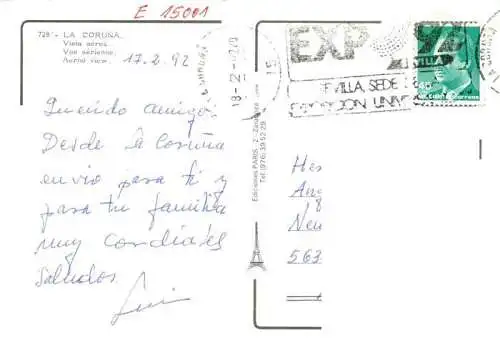 E 15001
728 - LA CORUÑA
Vista aérea.
Vue aérienne.
Aerial view.
17.2.92
Querido amigo:
Desde La Coruña
envio para ti y
para tu familia
muy cordiales
saludos.
Ediciones PARIS, Z - Zaragoza
Tel. (976) 39 52 29
EXPO 92
SEVILLA
SEVILLA, SEDE
EXPOSICION UNIV
Her
An
Neu
563